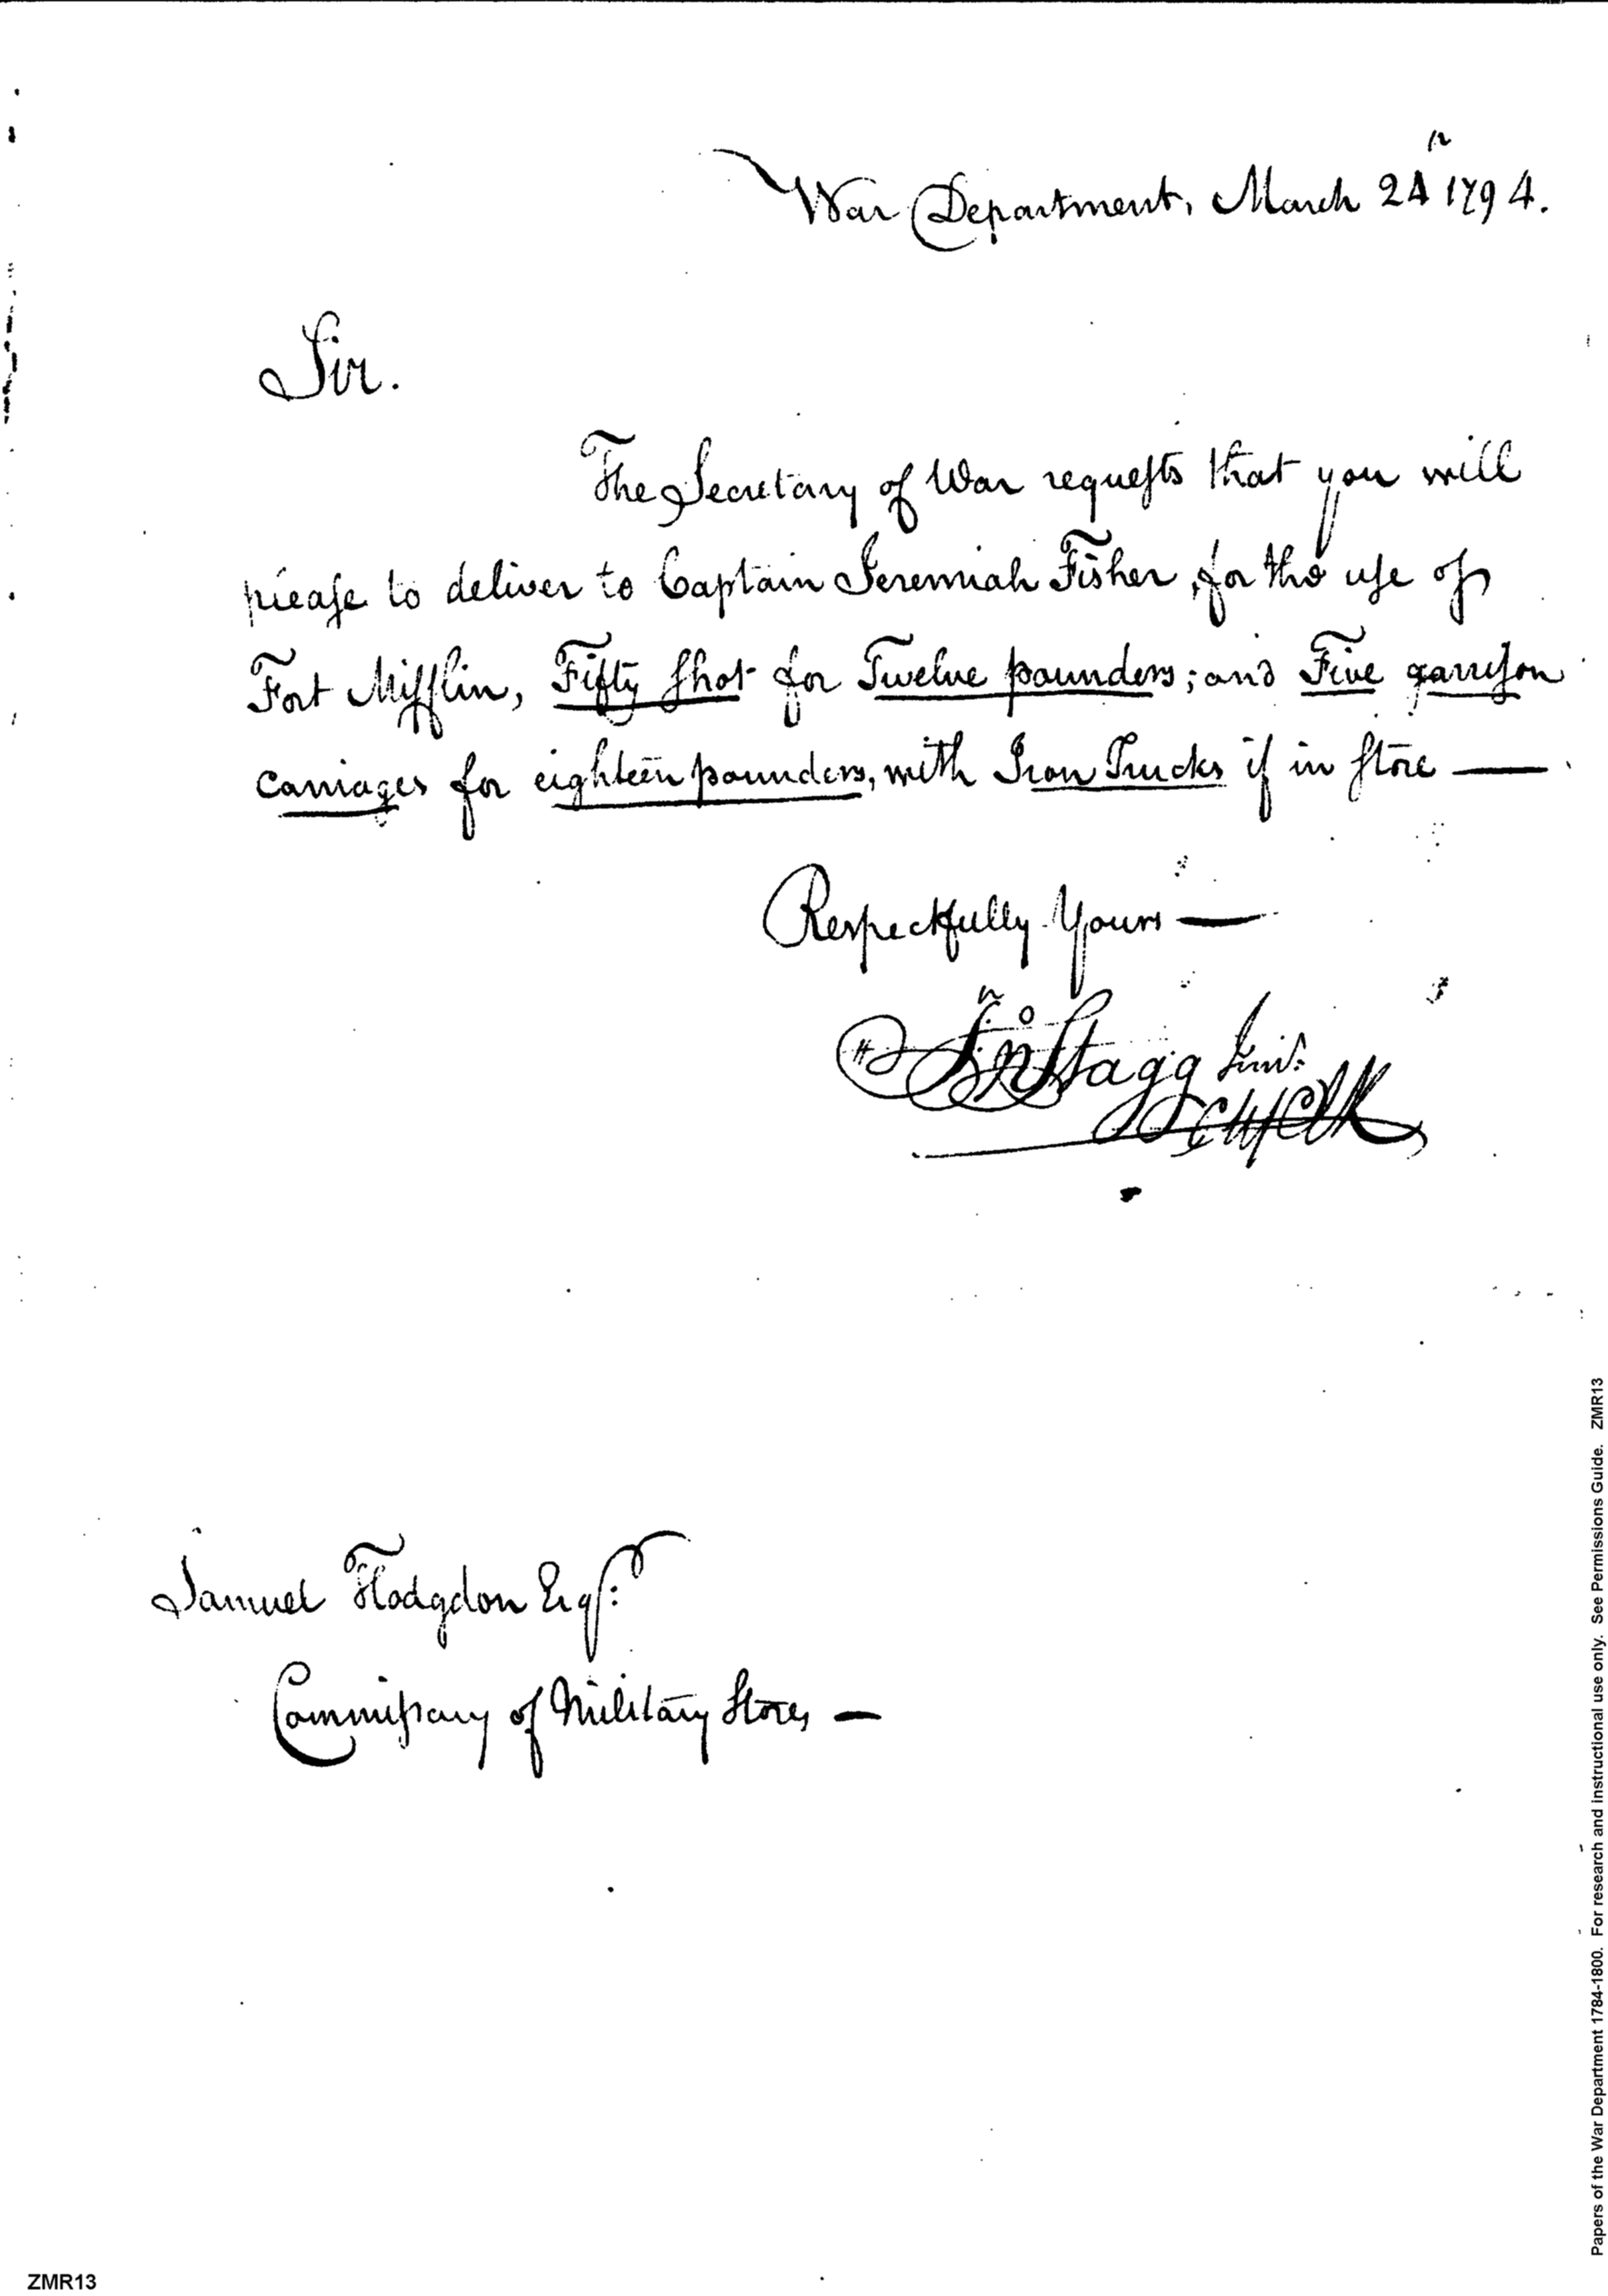 War Department, March 24th 1794.
Sir.
The Secretary of War requests that you will
please to deliver to Captain Jeremiah Fisher, for the use of
Fort Mifflin, Fifty shot for Twelve pounders; and Five garrison
carriages for eighteen pounders, with Iron Trucks if in store —
Respectfully Yours —
Jno Stagg Junr.
Ch Clk
Samuel Hodgdon Esqr:
Commissary of Military Stores —
Papers of the War Department 1784-1800. For research and instructional use only. See Permissions Guide. ZMR13
ZMR13